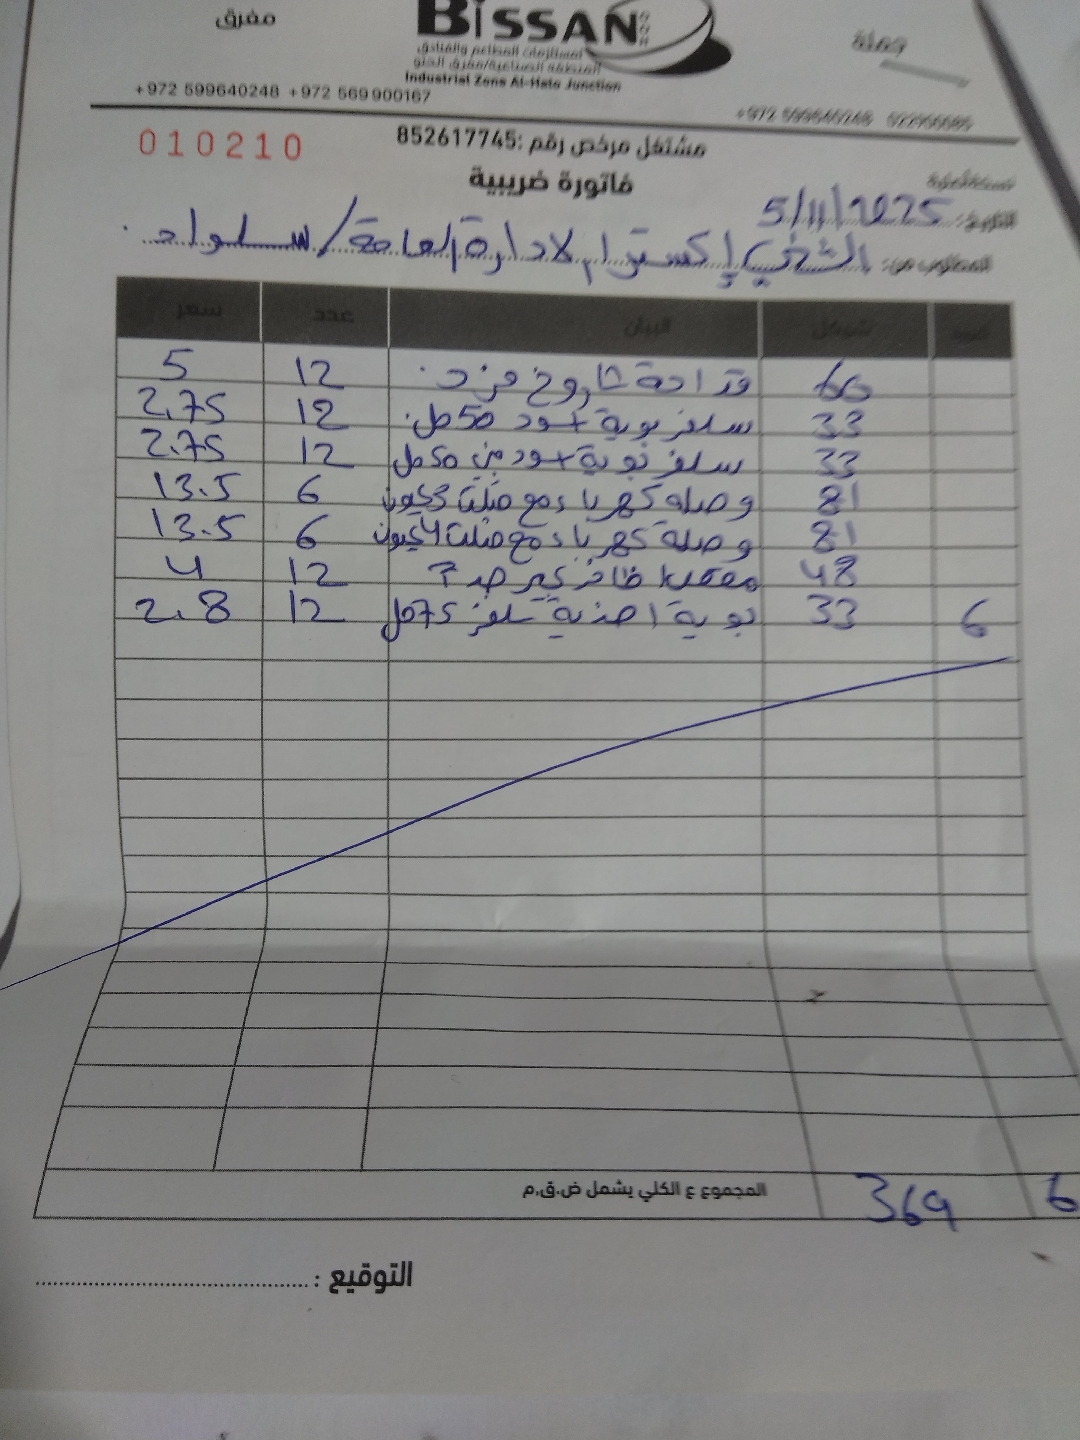 مفرق
BISSAN
جملة
لمستلزمات المطاعم والفنادق
المنطقة الصناعية/مفرق الحلو
Industrial Zone Al-Helo Junction
+972 599640248 +972 569900167
+972 599640248
010210
مشتغل مرخص رقم :852617745
فاتورة ضريبية
التاريخ: 5/11/2025
المطلوب من: الشني إكسترا م لادارة العامة / سلواد.
سعر عدد البيان شيكل
5 12 قداحة 66
2,75 12 سلفر بوية اسود 50 مل 33
2.75 12 سلفر بوية اسود بني 50 مل 33
13.5 6 وصلة كهرباء مع مثلث 3 81
13.5 6 وصلة كهرباء مع مثلث 4 81
4 12 كبير 48
2.8 12 بوية احذية سلفر 75 مل 33 6
المجموع ع الكلي يشمل ض.ق.م 369 6
التوقيع :